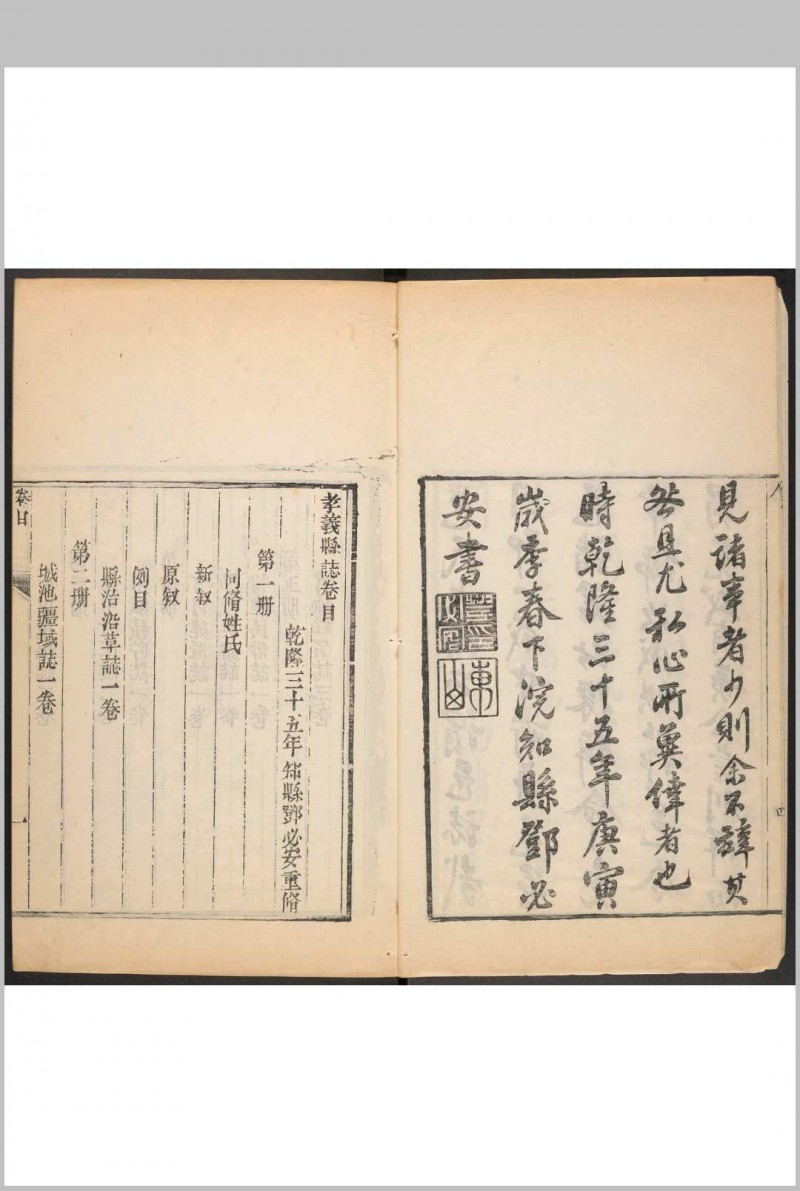 見諸事者少則余不辭其
咎且尤私心所冀倖者也
時乾隆三十五年庚寅
歲季春下浣知縣鄧必
安書
東山
孝義縣誌卷目
乾隆三十五年知縣鄧必安重脩
第一册
同脩姓氏
新敘
原敘
例目
縣治沿革誌一卷
第二册
城池疆域誌一卷
卷目
一